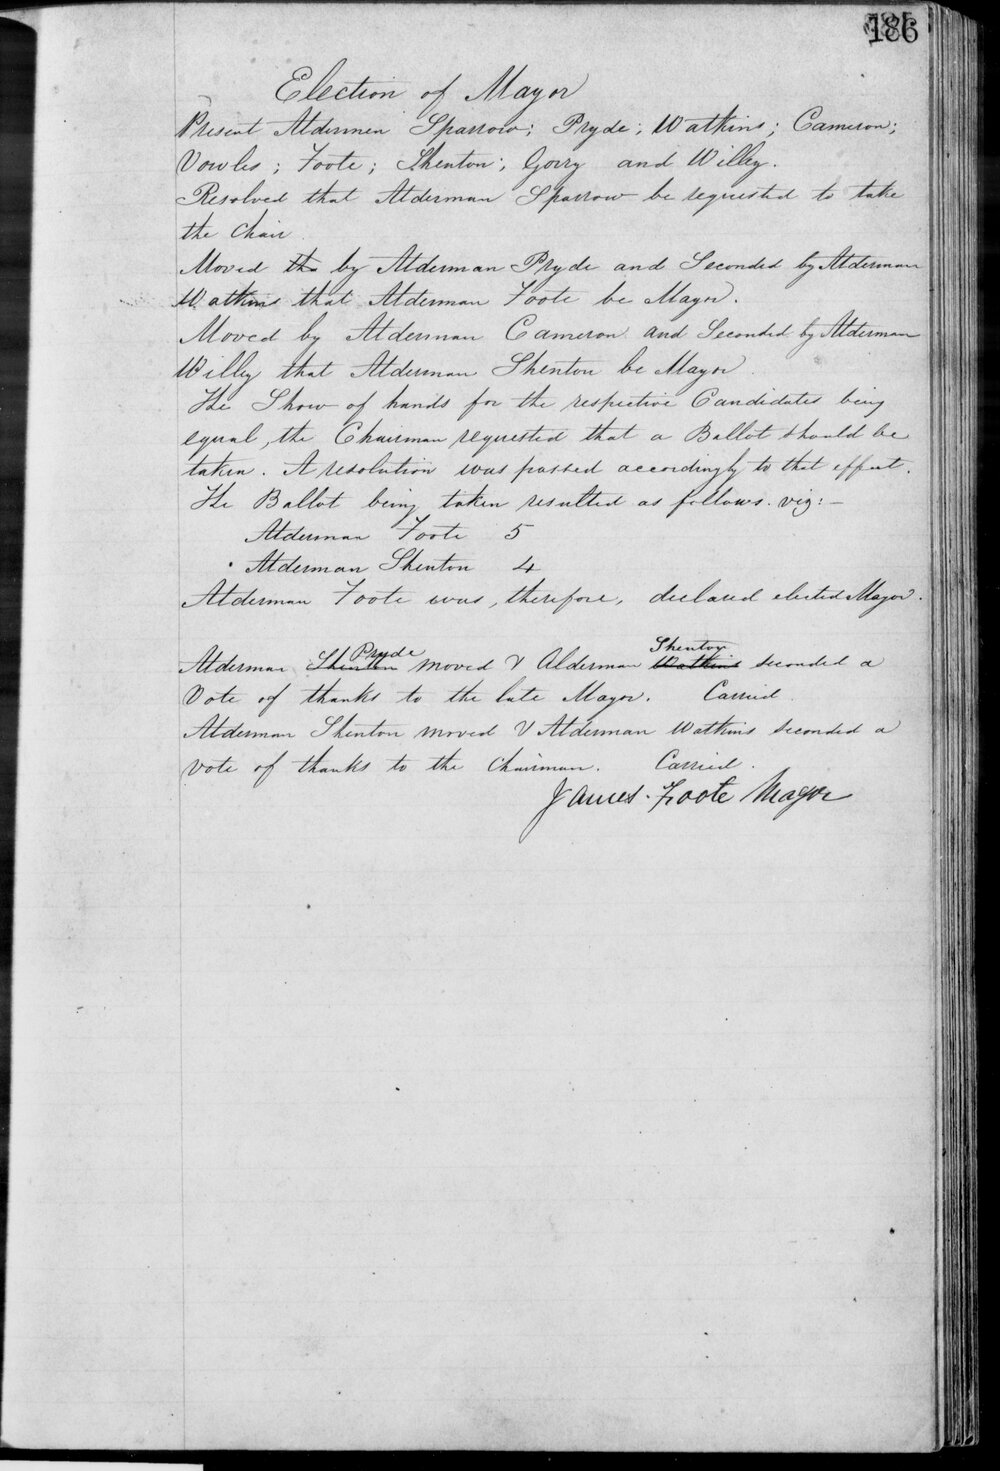 186
Election of Mayor
Present Aldermen Sparrow; Pryde; Watkins; Cameron;
Vowles; Foote; Shenton; Gorry and Willey.
Resolved that Alderman Sparrow be requested to take
the Chair
Moved the by Alderman Pryde and Seconded by Alderman
Watkins that Alderman Foote be Mayor.
Moved by Alderman Cameron and Seconded by Alderman
Willey that Alderman Shenton be Mayor.
The Show of hands for the respective Candidates being
equal, the Chairman requested that a Ballot should be
taken. A resolution was passed accordingly to that effect.
The Ballot being taken resulted as follows. viz:-
Alderman Foote 5
Alderman Shenton 4
Alderman Foote was, therefore, declared elected Mayor.
Pryde Shenton
Alderman Shenton moved & Alderman Watkins seconded a
Vote of thanks to the late Mayor. Carried.
Alderman Shenton moved & Alderman Watkins seconded a
vote of thanks to the Chairman. Carried.
James Foote Mayor